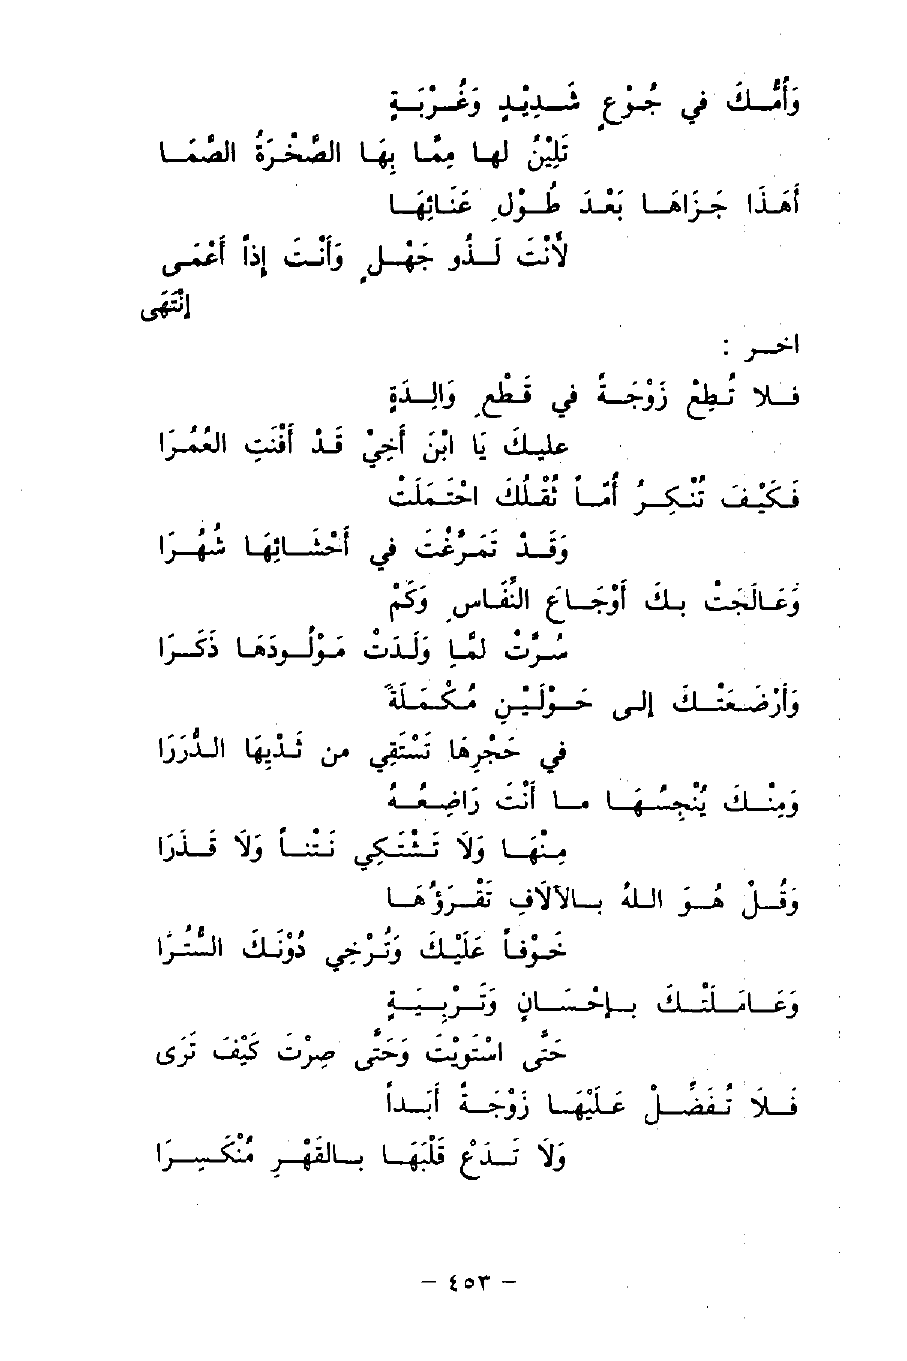 وَأُمُّكَ في جُوْعٍ شَدِيْدٍ وَغُرْبَةٍ
تَلِيْنُ لها مِمَّا بِهَا الصَّخْرَةُ الصَّمَا
أَهَذَا جَزَاهَا بَعْدَ طُوْلِ عَنَائِهَا
لأَنْتَ لَذُو جَهْلٍ وَأَنْتَ إِذاً أَعْمَى
إنْتَهَى
اخر :
فلا تُطِعْ زَوْجَةً في قَطْعِ وَالِدَةٍ
عليكَ يَا ابْنَ أَخِيْ قَدْ أَفْنَتِ العُمُرَا
فَكَيْفَ تُنْكِرُ أُمّاً ثُقْلُكَ احْتَمَلَتْ
وَقَدْ تَمَرَّغْتَ في أَحْشَائِهَا شُهُرَا
وَعَالَجَتْ بكَ أَوْجَاعَ النِّفَاسِ وَكَمْ
سُرَّتْ لمَّا وَلَدَتْ مَوْلُودَهَا ذَكَرَا
وَأَرْضَعَتْكَ إلى حَوْلَيْنِ مُكْمَلَةً
في حَجْرِهَا تَسْتَقِي من ثَدْيِهَا الدُّرَرَا
وَمِنْكَ يُنْجِسُهَا ما أَنْتَ رَاضِعُهُ
مِنْهَا وَلاَ تَشْتَكِي نَتْناً وَلاَ قَذَرَا
وَقُلْ هُوَ اللهُ بالآلاَفِ تَقْرَؤُهَا
خَوْفاً عَلَيْكَ وَتُرْخِي دُوْنَكَ السُّتُرَا
وَعَامَلَتْكَ بإِحْسَانٍ وَتَرْبِيَةٍ
حَتَّى اسْتَوَيْتَ وَحَتَّى صِرْتَ كَيْفَ تَرَى
فَلاَ تُفَضِّلْ عَلَيْهَا زَوْجَةً أَبَداً
وَلاَ تَدَعْ قَلْبَهَا بالقَهْرِ مُنْكَسِرَا
– ٤٥٣ –